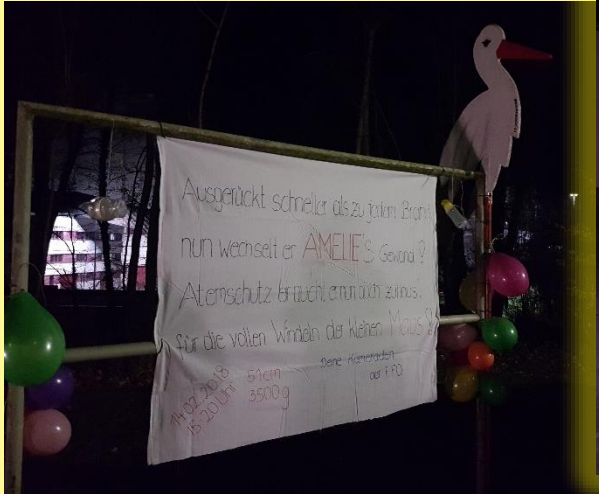 Ausgerückt schneller als zu jedem Brand
nun wechselt er AMELIE'S Gewand !
Atemschutz braucht er nun auch zuhaus,
für die vollen Windeln der kleinen Maus !
14.02.2018
15:20 Uhr
51cm
3500g
Deine Kameraden
der